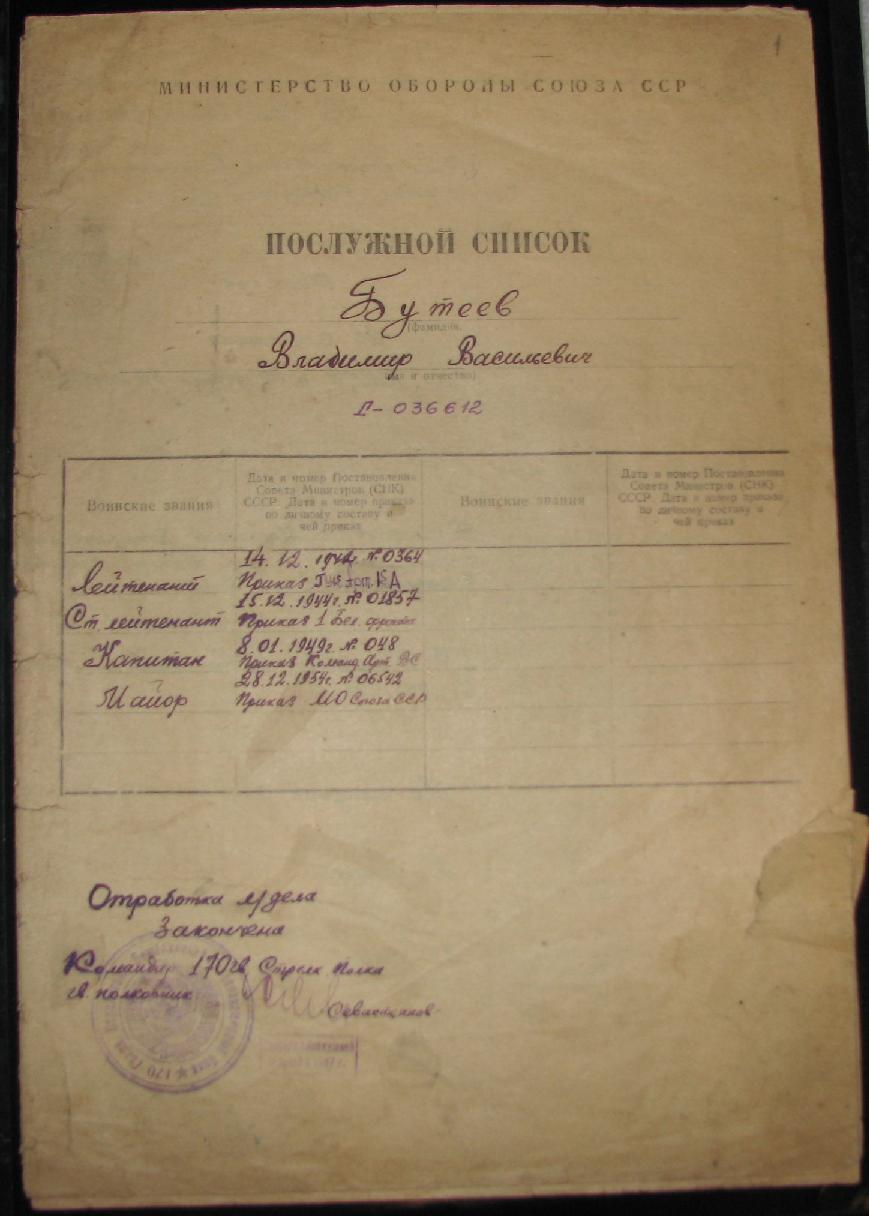 1
МИНИСТЕРСТВО ОБОРОНЫ СОЮЗА ССР
ПОСЛУЖНОЙ СПИСОК
Бутеев
(фамилия)
Владимир Васильевич
(имя и отчество)
Г-036612
Воинские звания
Дата и номер Постановления
Совета Министров (СНК)
СССР. Дата и номер приказа
по личному составу и
чей приказ
Воинские звания
Дата и номер Постановления
Совета Министров (СНК)
СССР. Дата и номер приказа
по личному составу и
чей приказ
Лейтенант
14.12.1942 № 0364
Приказ КА
Ст лейтенант
15.12.1944г. № 01857
Приказ 1 Бел. фронта
Капитан
8.01.1949г. № 048
Приказ Команд. Арт. ВС
Майор
28.12.1954г. № 06542
Приказ МО Союза ССР
Отработка л/дела
Закончена
Командир 170 гв. Стрелк. Полка
гв. полковник